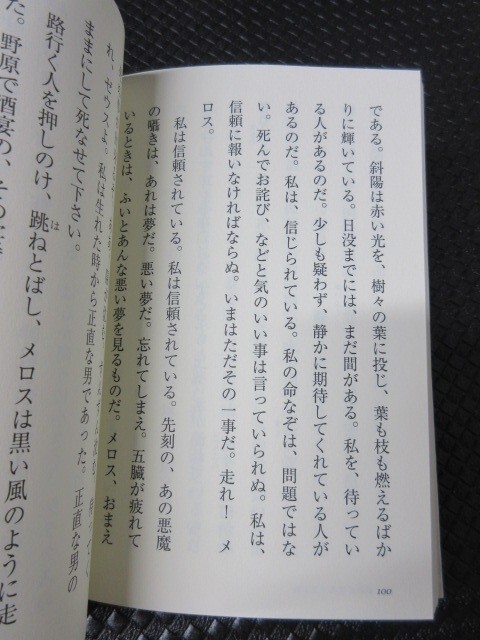 である。斜陽は赤い光を、樹々の葉に投じ、葉も枝も燃えるばか
りに輝いている。日没までには、まだ間がある。私を、待ってい
る人があるのだ。少しも疑わず、静かに期待してくれている人が
あるのだ。私は、信じられている。私の命なぞは、問題ではな
い。死んでお詫び、などと気のいい事は言っていられぬ。私は、
信頼に報いなければならぬ。いまはただその一事だ。走れ！　メ
ロス。
私は信頼されている。私は信頼されている。先刻の、あの悪魔
の囁きは、あれは夢だ。悪い夢だ。忘れてしまえ。五臓が疲れて
いるときは、ふいとあんな悪い夢を見るものだ。メロス、おまえ
100
れ、ゼウスよ。私は生れた時から正直な男であった。正直な男の
ままにして死なせて下さい。
路行く人を押しのけ、跳ねとばし、メロスは黒い風のように走
は
た。野原で酒宴の、その